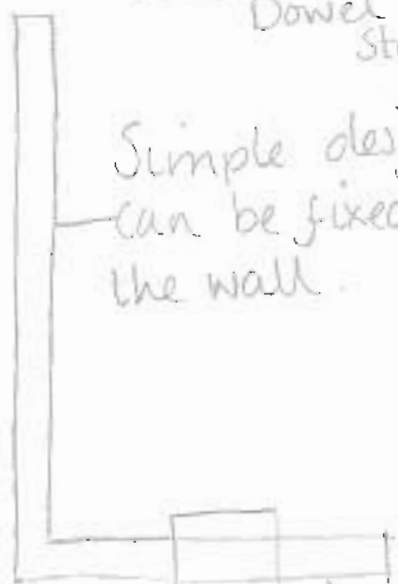 Dowel
St
Simple des
can be fixed
the wall.